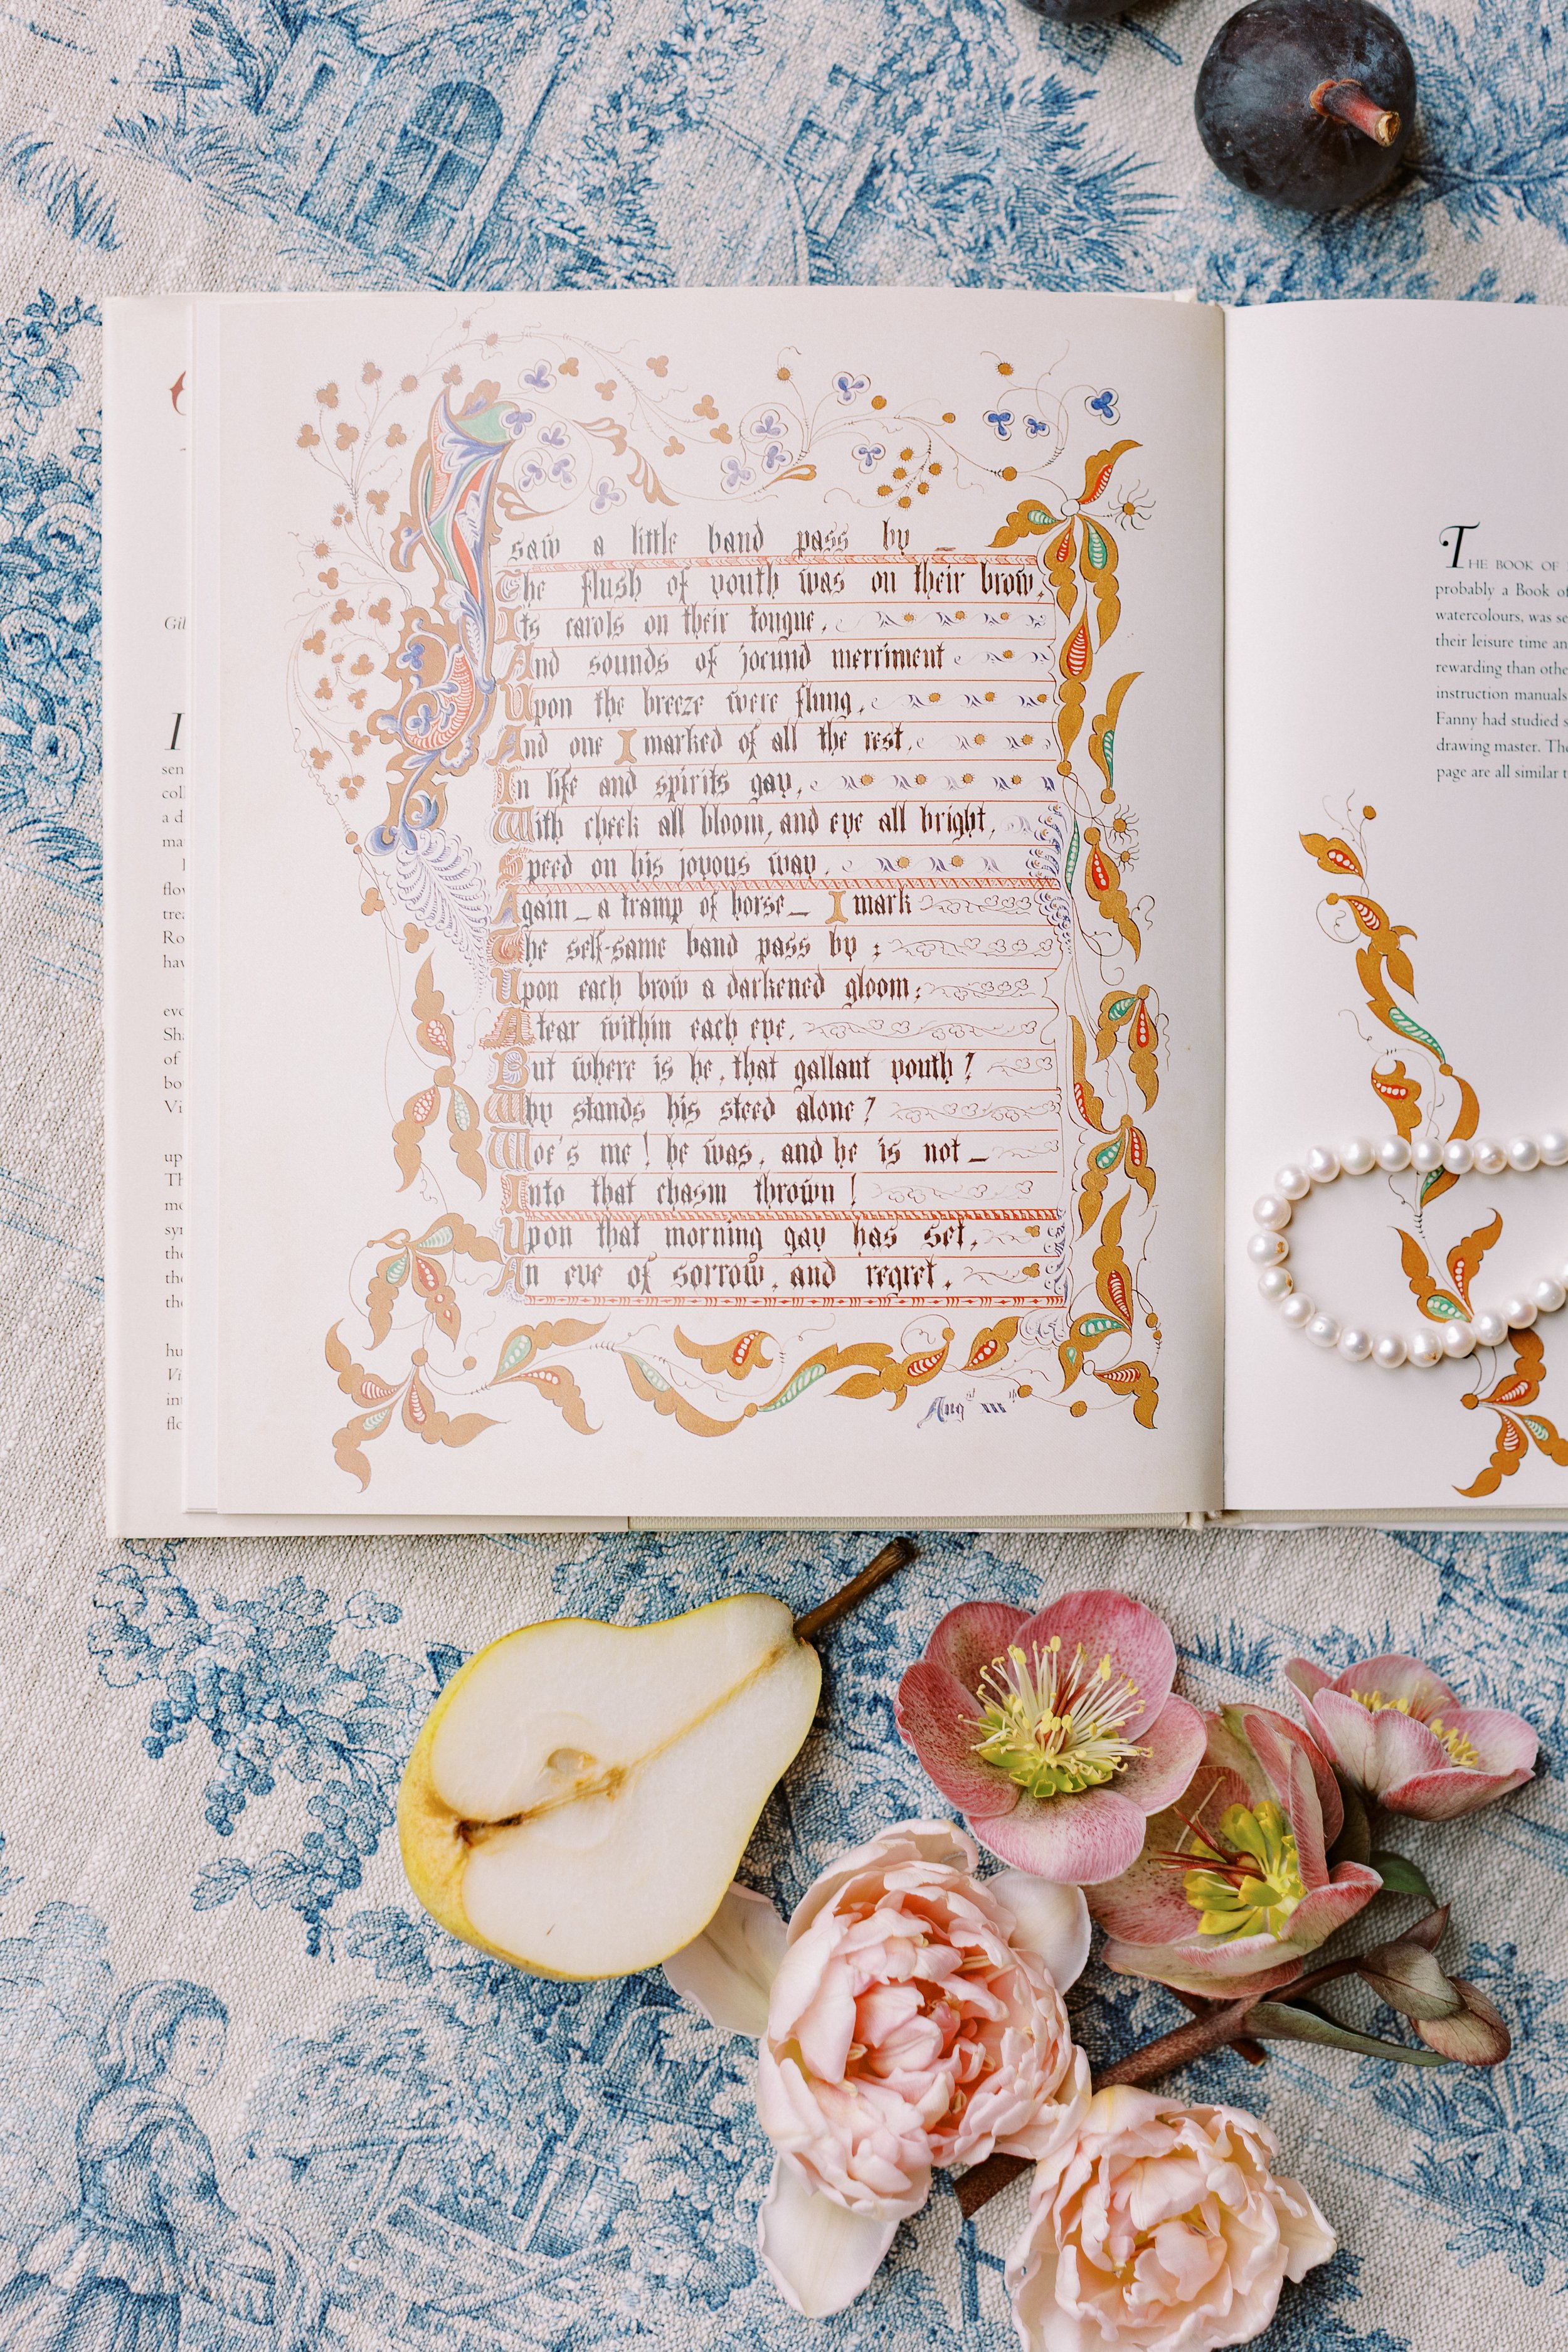 I saw a little band pass by _
The flush of youth was on their brow,
Its carols on their tongue,
And sounds of jocund merriment
Upon the breeze were flung,
And one I marked of all the rest,
In life and spirits gay,
With cheek all bloom, and eye all bright,
Speed on his joyous way.
Again _ a tramp of horse _ I mark
The self-same band pass by ;
Upon each brow a darkened gloom,
A tear within each eye.
But where is he, that gallant youth ?
Why stands his steed alone ?
Woe's me ! he was, and he is not _
Into that chasm thrown !
Upon that morning gay has set,
An eve of sorrow, and regret.
THE BOOK OF
probably a Book of
watercolours, was se
their leisure time an
rewarding than othe
instruction manuals
Fanny had studied s
drawing master. The
page are all similar t
Gil
I
sen
col
a d
ma
flow
trea
Ro
hav
evo
Sha
of
bo
Vi
up
Th
mo
syn
the
the
the
hu
Vi
int
flo